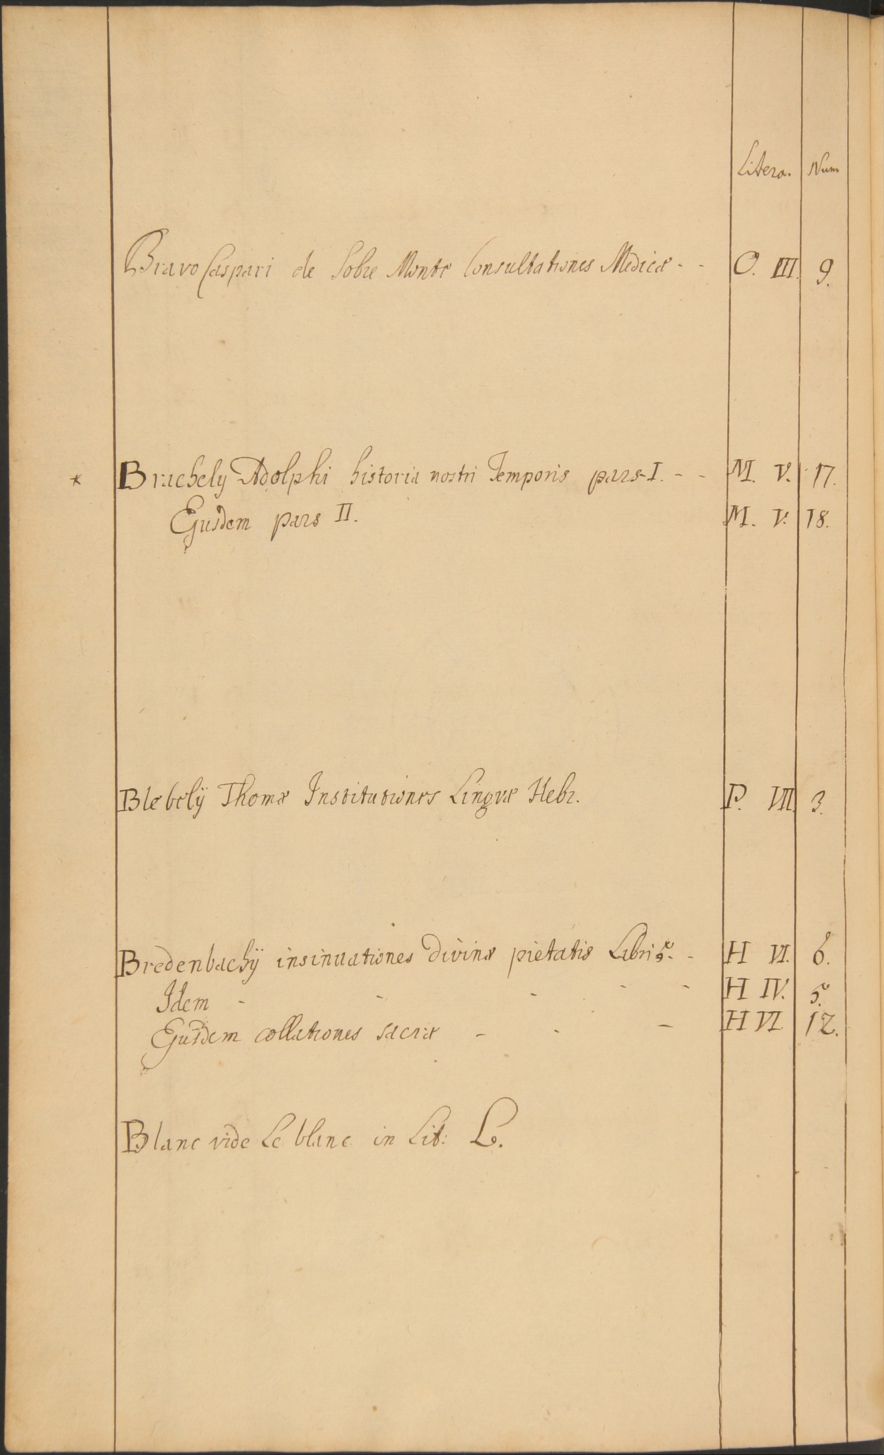 Litera. Num
Bravo Caspari de Sobre Monte Consultationes Medicæ - - O. III. 9.
* Brachely Adolphi historia nostri Temporis pars I. - - M. V. 17.
Ejusdem pars II. M. V. 18.
Blebelij Thomæ Institutiones Linguæ Hebr. P. VII. 3.
Bredenbachij insinuationes divinæ pietatis Libri 5. - H VI. 6.
Idem - - - - - H IV. 5.
Ejusdem collationes sacræ - - - H VI. 12.
Blanc vide Le blanc in Lit: L.